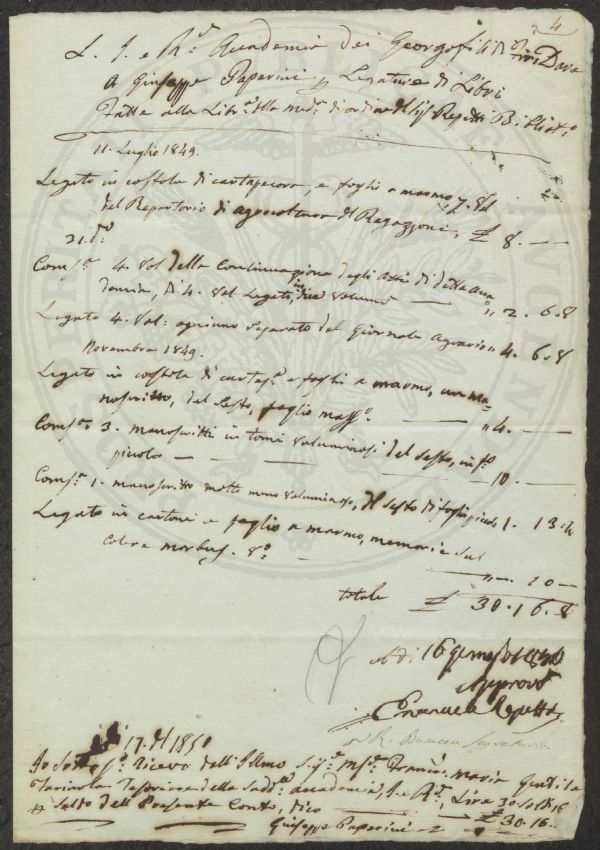 4
L. I. e R. Accademia dei Georgofili di Dare
A Giuseppe Paperini p Legature di Libri
Fatte alla Libr. della med. di ordine del Sig. Repetti Bibliot.
11. Luglio 1849.
Legato in costola di cartapecora, e foglj a marmo 7. Vol
del Repertorio di agricoltura di Ragazzoni, £ 8. —
31. do:
Comse 4. Vol della Continuazione degli Atti di detta Acca
demia, di 4. Vol Legati in due volumi — „ 2. 6. 8
Legato 4. Vol: ogniuno separato del Giornale Agrario „ 4. 6. 8
Novembre 1849.
Legato in costola di cartap. e foghi a marmo, un Ma-
noscritto, del Sesto, foglio mass. — „ 4. —
Comse 3. manoscritti in tomi voluminosi del sesto, in fo.
piccolo — — — 10 —
Comse 1. manoscritto molto meno voluminoso, del sesto di foglio piccolo 1. 13. 4
Legato in cartone e foglio a marmo, memorie sul
Colera morbus. 8o — „ — 10 —
totale £ 30. 16. 8
A di 16 1850
Approvo
Emanuele Repetti
17. 1850
Io sotto. Ricevo dall' Illmo Sig. Franco. Maria Gentile
Farinola Tesoriere della Sudd. accademia, I. e R., Lire 30 Soldi 16
p Saldo del Presente Conto, dico — £ 30. 16. —
Giuseppe Paperini